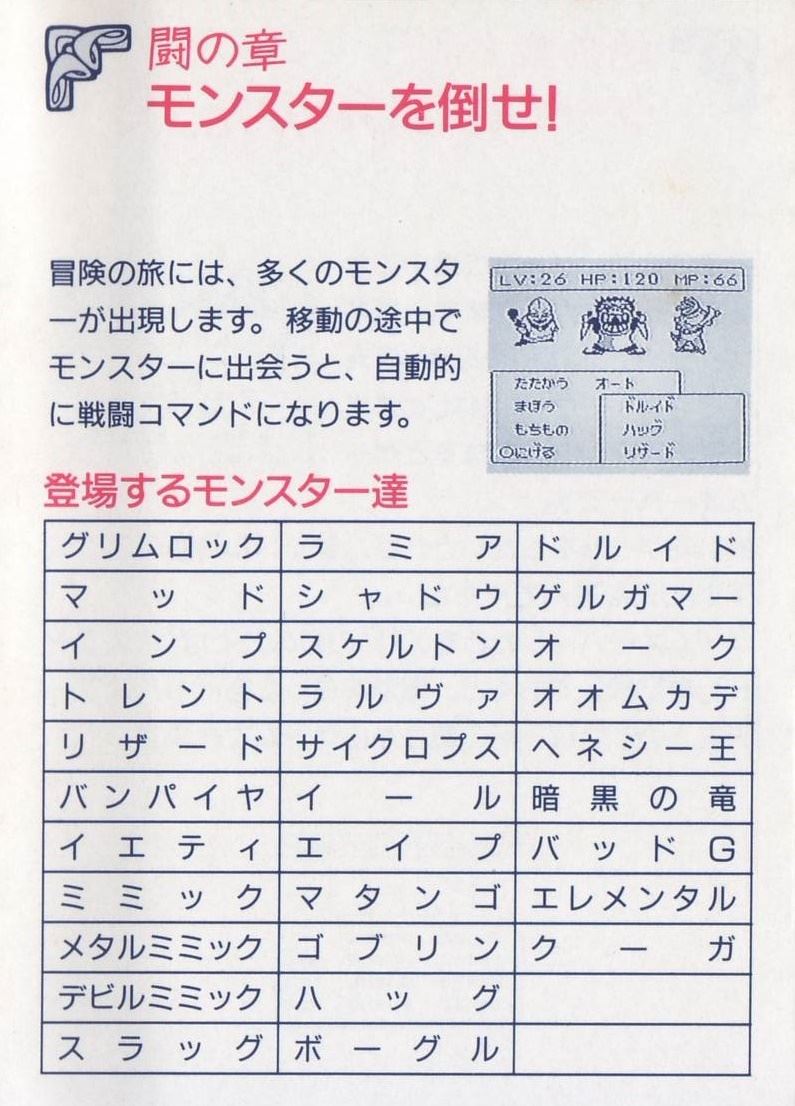 闘の章
モンスターを倒せ!
冒険の旅には、多くのモンスタ
ーが出現します。移動の途中で
モンスターに出会うと、自動的
に戦闘コマンドになります。
LV:26 HP:120 MP:66
たたかう オート
まほう
もちもの
○にげる
ドルイド
ハッグ
リザード
登場するモンスター達
グリムロック ラミア ドルイド
マッド シャドウ ゲルガマー
インプ スケルトン オーク
トレント ラルヴァ オオムカデ
リザード サイクロプス ヘネシー王
バンパイヤ イール 暗黒の竜
イエティ エイプ バッドG
ミミック マタンゴ エレメンタル
メタルミミック ゴブリン クーガ
デビルミミック ハッグ
スラッグ ボーグル